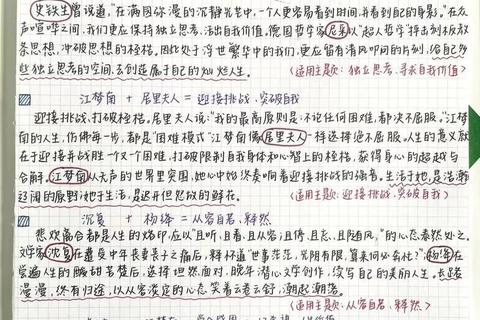 史铁生曾说道,"在满园弥漫的沉静光芒中,一个人更容易看到时间,并看到自己的身影。"在众
声喧哗之间,我们更应保持独立思考、活出自我价值,德国哲学家尼采以"超人哲学"抨击刻板教
条思想,冲破思想的桎梏。因此处于浮世繁华中的我们,更应留有清风叩问的片刻,给自己多
些独立思考的空间,去创造属于自己的灿烂人生。(适用主题:独立思考、寻求自我价值)
江梦南 + 居里夫人 = 迎接挑战,突破自我
迎接挑战,打破桎梏。居里夫人说:"我的最高原则是:不论任何困难,都决不屈服。"江梦
南的人生,仿佛每一步,都是"困难模式"江梦南像居里夫人一样选择绝不屈服。人生的意义放
在于迎接并战胜一个又一个困难,打破限制自我身体和心智上的桎梏,获得身心的超越与
合解。江梦南从无声的世界里突围,她心中始终奏响着迎接挑战的强音。生活于她,是浩瀚
辽阔的原野;她于生活,是迟开但怒放的鲜花。(适用主题:迎接挑战,突破自我)
沉复 + 杨绛 = 从容自若、释然
悲欢离合都是人生的烙印,应以"且听,且看,且从容;且停,且忘,且随风,"的心态泰然处之。
文学家沈复在暮矣中年丧妻丧子之痛后,释怀道"世事茫茫,光阴有限,算来何必奔忙?"杨绛在
尝遍人生的酸甜苦楚后,选择坦然面对,晚年潜心文学创作,续写自己的美丽人生。长路
漫漫,终有归途,以从容淡定的心态,笑看云卷云舒,潮起潮落。
(适用主题:从容自若、释然)